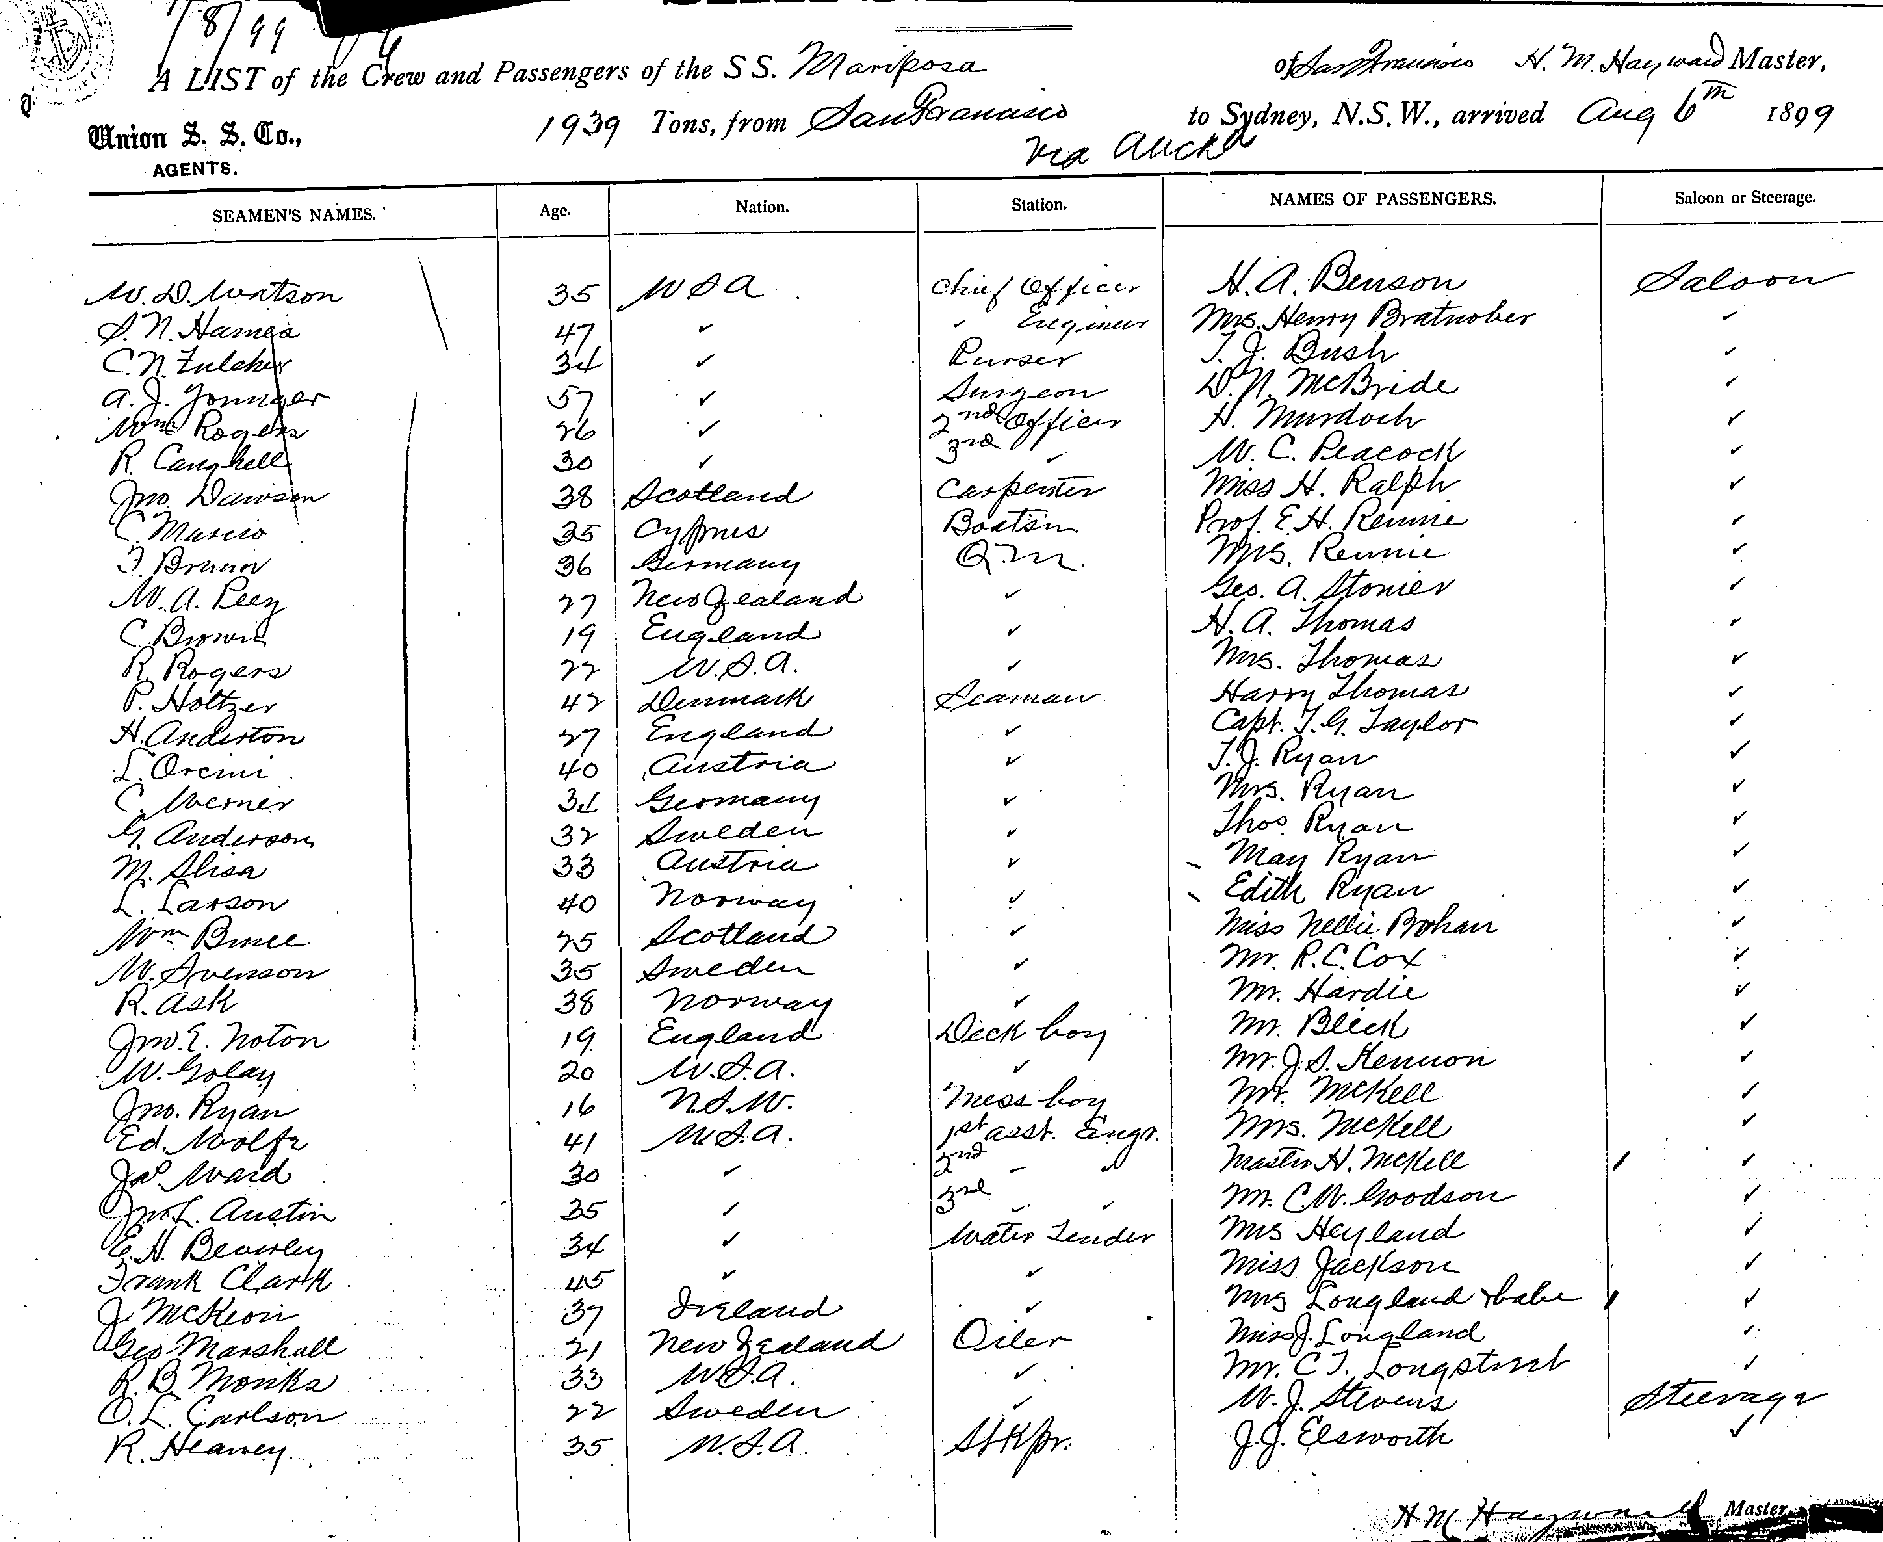 1/8/99
A LIST of the Crew and Passengers of the S S. Mariposa of San Francisco H. M. Hayward Master,
Union S. S. Co., 1939 Tons, from San Francisco to Sydney, N.S.W., arrived Aug 6th 1899
AGENTS. via Auckd
SEAMEN'S NAMES. Age. Nation. Station. NAMES OF PASSENGERS. Saloon or Steerage.
W. D. Watson 35 U S A Chief Officer H. A. Benson Saloon
S. N. Hames 47 ✓ ✓ Engineer Mrs. Henry Bratnober ✓
C. N. Fulcher 34 ✓ Purser T. J. Bush ✓
A. J. Younger 57 ✓ Surgeon D. N. McBride ✓
Wm Rogers 26 ✓ 2nd Officer H. Murdoch ✓
R. Caughell 30 ✓ 3rd ✓ W. C. Peacock ✓
Jno. Dawson 38 Scotland Carpenter Miss H. Ralph ✓
C. Marcio 35 Cyprus Boatsn Prof. E. H. Rennie ✓
F. Brunn 36 Germany Q. M. Mrs. Rennie ✓
W. A. Peez 27 New Zealand ✓ Geo. A. Stonier ✓
C. Brown 19 England ✓ H. A. Thomas ✓
R. Rogers 22 U. S. A. ✓ Mrs. Thomas ✓
P. Holtzer 42 Denmark Seaman Harry Thomas ✓
H. Anderton 27 England ✓ Capt. T. G. Taylor ✓
L. Orcini 40 Austria ✓ T. J. Ryan ✓
C. Werner 31 Germany ✓ Mrs. Ryan ✓
G. Anderson 32 Sweden ✓ Thos. Ryan ✓
M. Slisa 33 Austria ✓ May Ryan ✓
L. Larson 40 Norway ✓ Edith Ryan ✓
Wm Bruce 25 Scotland ✓ Miss Nellie Bohan ✓
W. Svenson 35 Sweden ✓ Mr. R. C. Cox ✓
R. Ask 38 Norway ✓ Mr. Hardie ✓
Jno. E. Noton 19 England Deck boy Mr. Bleck ✓
W. Golay 20 U. S. A. ✓ Mr. J. S. Kennon ✓
Jno. Ryan 16 N. S. W. Mess boy Mr. McKell ✓
Ed. Wolfe 41 U. S. A. 1st asst. Engr. Mrs. McKell ✓
Jas. Ward 30 ✓ 2nd ✓ ✓ Master H. McKell ✓
Jno. L. Austin 35 ✓ 3rd ✓ ✓ Mr. C. W. Goodson ✓
E. H. Beverley 34 ✓ Water Tender Mrs Heyland ✓
Frank Clark 45 ✓ ✓ Miss Jackson ✓
J. McKeon 37 Ireland ✓ Mrs Longland & babe ✓
Geo Marshall 21 New Zealand Oiler Miss J. Longland ✓
R. B. Monks 33 U. S. A. ✓ Mr. C. T. Longstreet ✓
O. L. Carlson 22 Sweden ✓ W. J. Stevens Steerage
R. Heaney 35 U. S. A. StKpr. J. J. Elsworth ✓
H M Hayward Master.